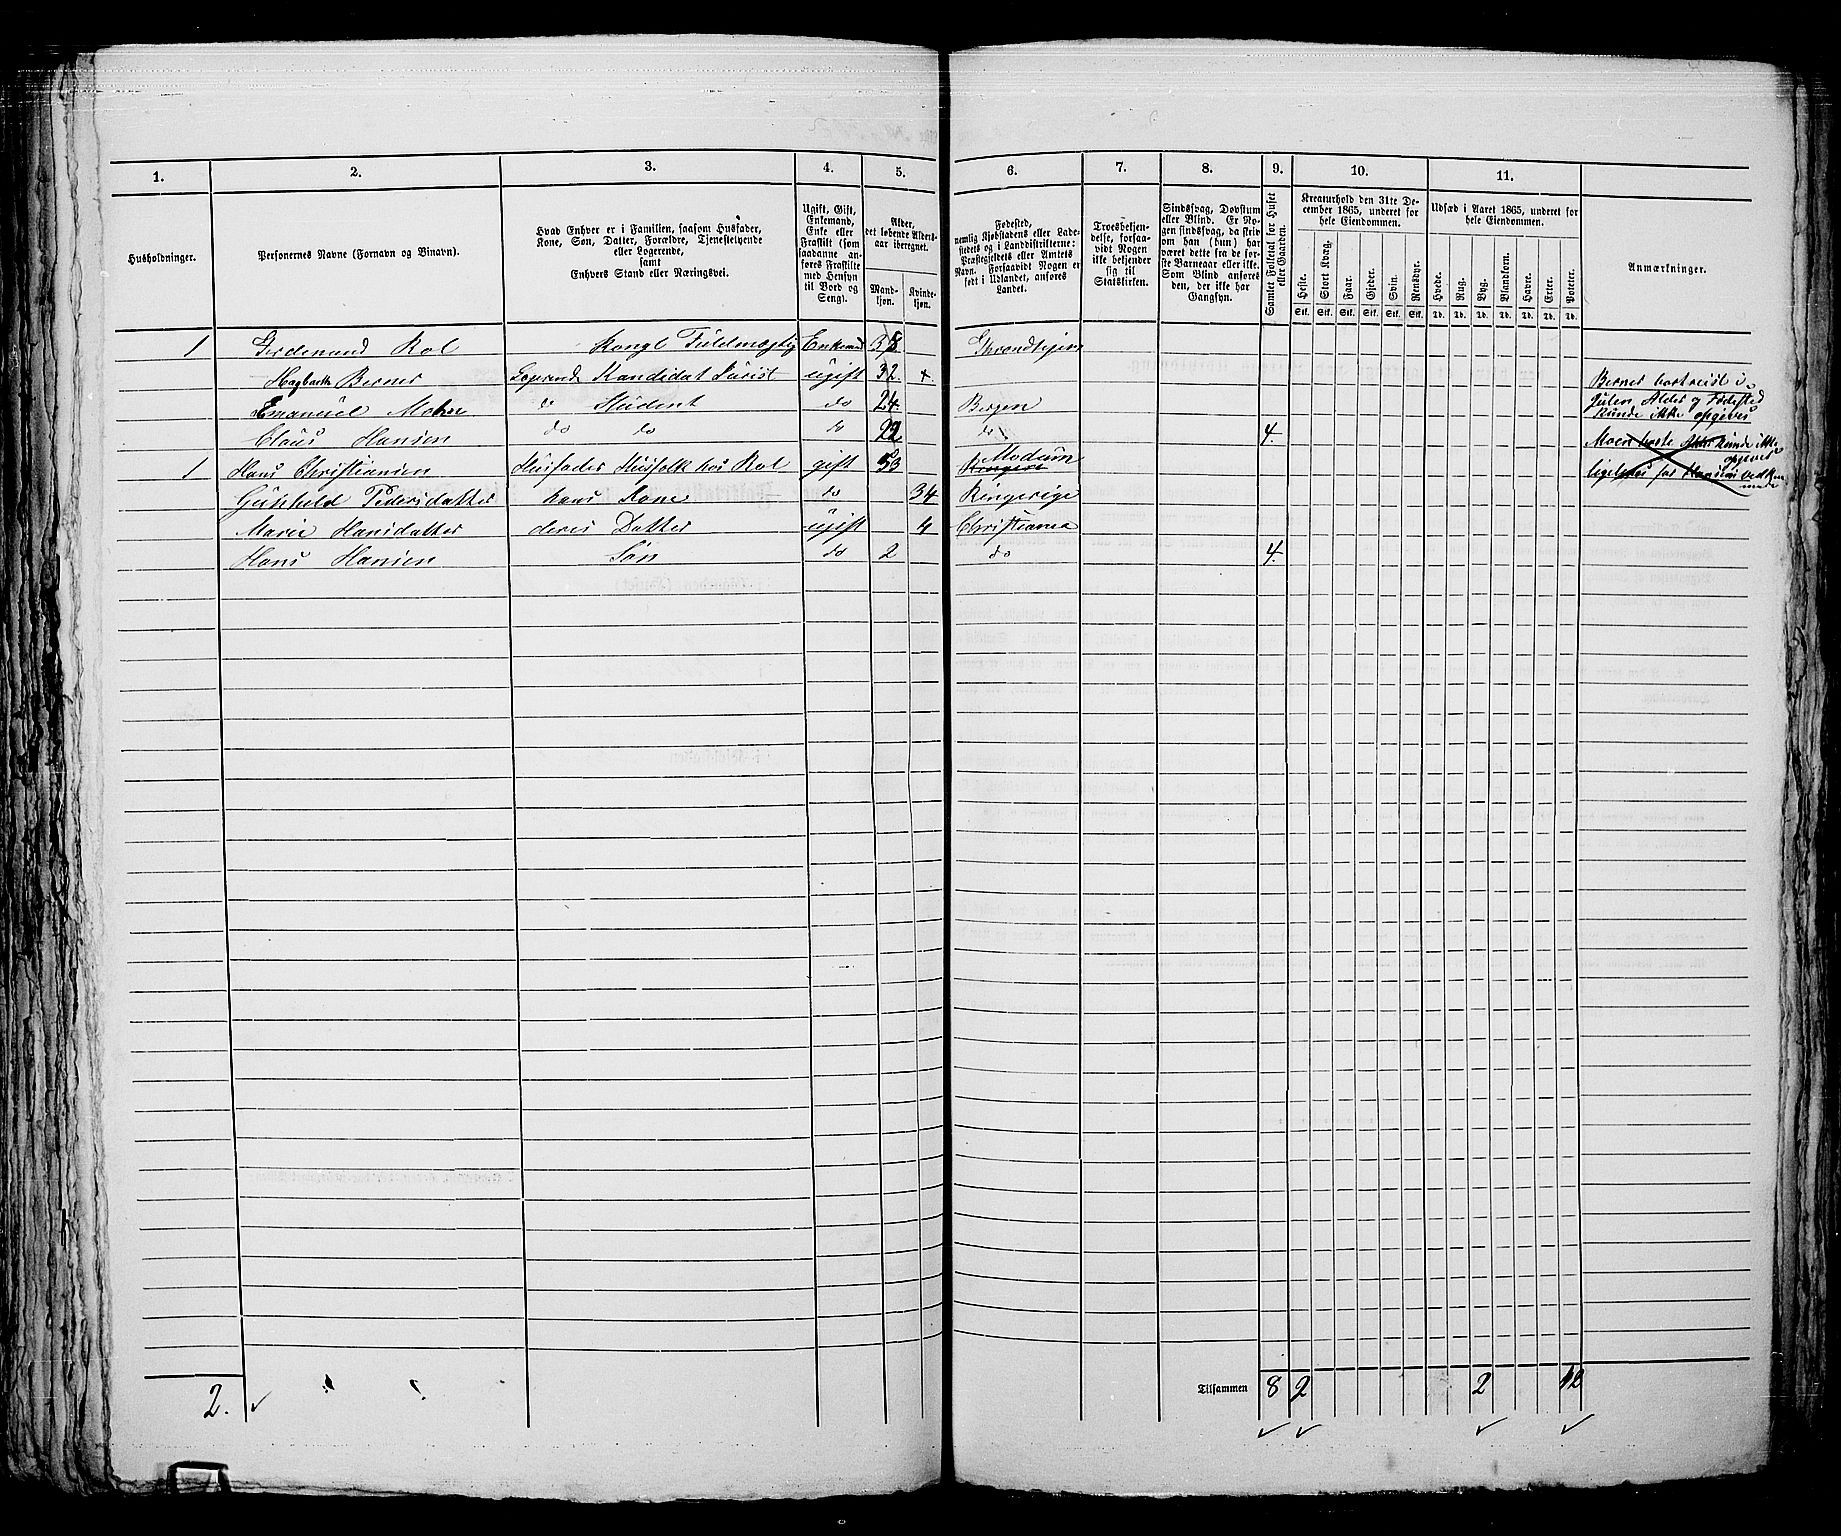 1. 2. 3. 4. 5. 6. 7. 8. 9. 10. 11.
Husholdninger.
Personernes Navne (Fornavn og Binavn).
Hvad Enhver er i Familien, saasom Husfader,
Kone, Søn, Datter, Forældre, Tjenestetyende
eller Logerende,
samt
Enhvers Stand eller Næringsvei.
Ugift, Gift,
Enkemand,
Enke eller
Fraskilt (som
saadanne an-
føres Fraskilte
med Hensyn
til Bord og
Seng).
Alder,
det løbende Alders-
aar iberegnet.
Mand-
kjøn.
Kvinde-
kjøn.
Fødested,
nemlig Kjøbstadens eller Lade-
stedets og i Landdistrikterne:
Præstegjeldets eller Amtets
Navn. Forsaavidt Nogen er
født i Udlandet, anføres
Landet.
Troesbekjen-
delse, forsaa-
vidt Nogen
ikke bekjender
sig til
Statskirken.
Sindssvag, Døvstum
eller Blind. Er No-
gen sindssvag, da skriv
om han (hun) har
været dette fra de før-
ste Barneaar eller ikke.
Som Blind anføres
den, der ikke har
Gangsyn.
Samlet Folketal for Huset
eller Gaarden.
Kreaturhold den 31te De-
cember 1865, underet for
hele Eiendommen.
Heste. Stort Kvæg. Faar. Gjeder. Svin. Rensdyr.
Stk. Stk. Stk. Stk. Stk. Stk.
Udsæd i Aaret 1865, underet for
hele Eiendommen.
Hvede. Rug. Byg. Blandkorn. Havre. Erter. Poteter.
Td. Td. Td. Td. Td. Td. Td.
Anmærkninger.
1 Ferdenand Rol Kongl Fuldmægtig Enkemd 38 Throndhjem
Hagbarth Berner Logerende Kandidat Jurist ugift 32. +. Berner bortreist i
Emanuel Mohn do Student do 24. Bergen Julen, Alder og Fødested
kunde ikke opgives
Claus Hansen do do do 22 do 4.
1 Hans Christiansen Husfader Husfolk hos Rol gift 53 Modum
Gunhild Pedersdatter hans Kone do 34 Ringerige
Marie Hansdatter deres Datter ugift 4 Christiania
Hans Hansen Søn do 2 do 4.
2. Tilsammen 8 2 2